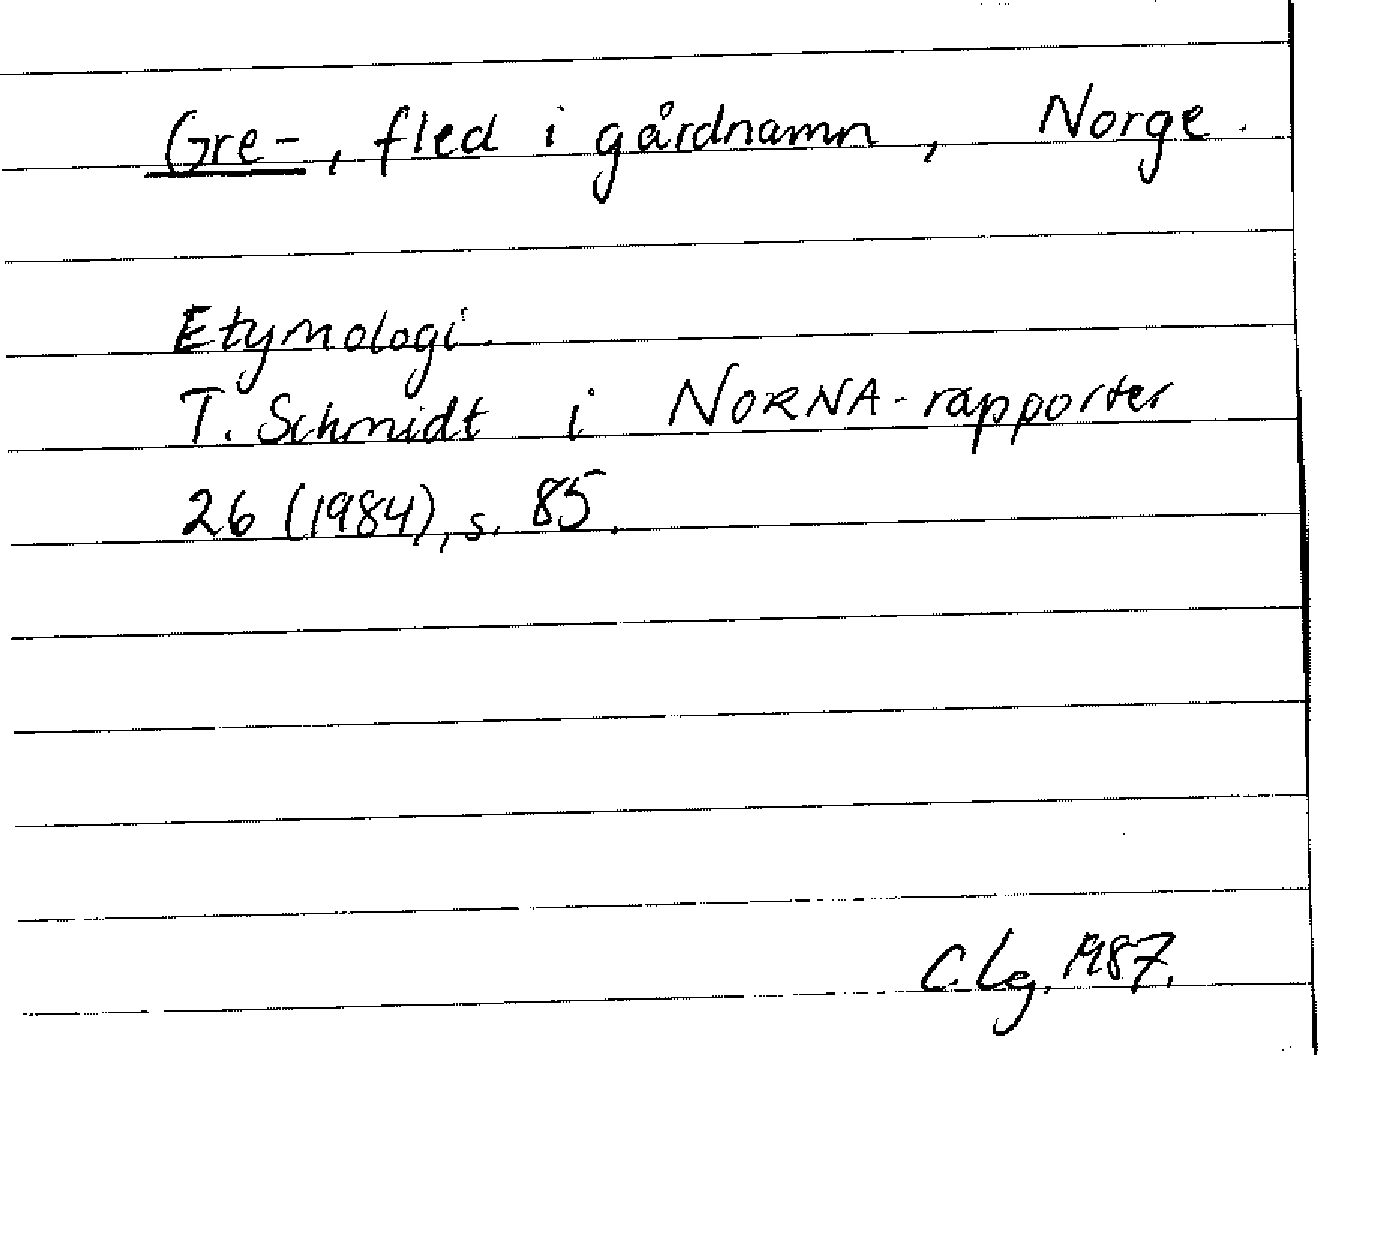 Gre-, fled i gårdnamn, Norge.
Etymologi.
T. Schmidt i NORNA-rapporter
26 (1984), s. 85.
C. Lg. 1987.